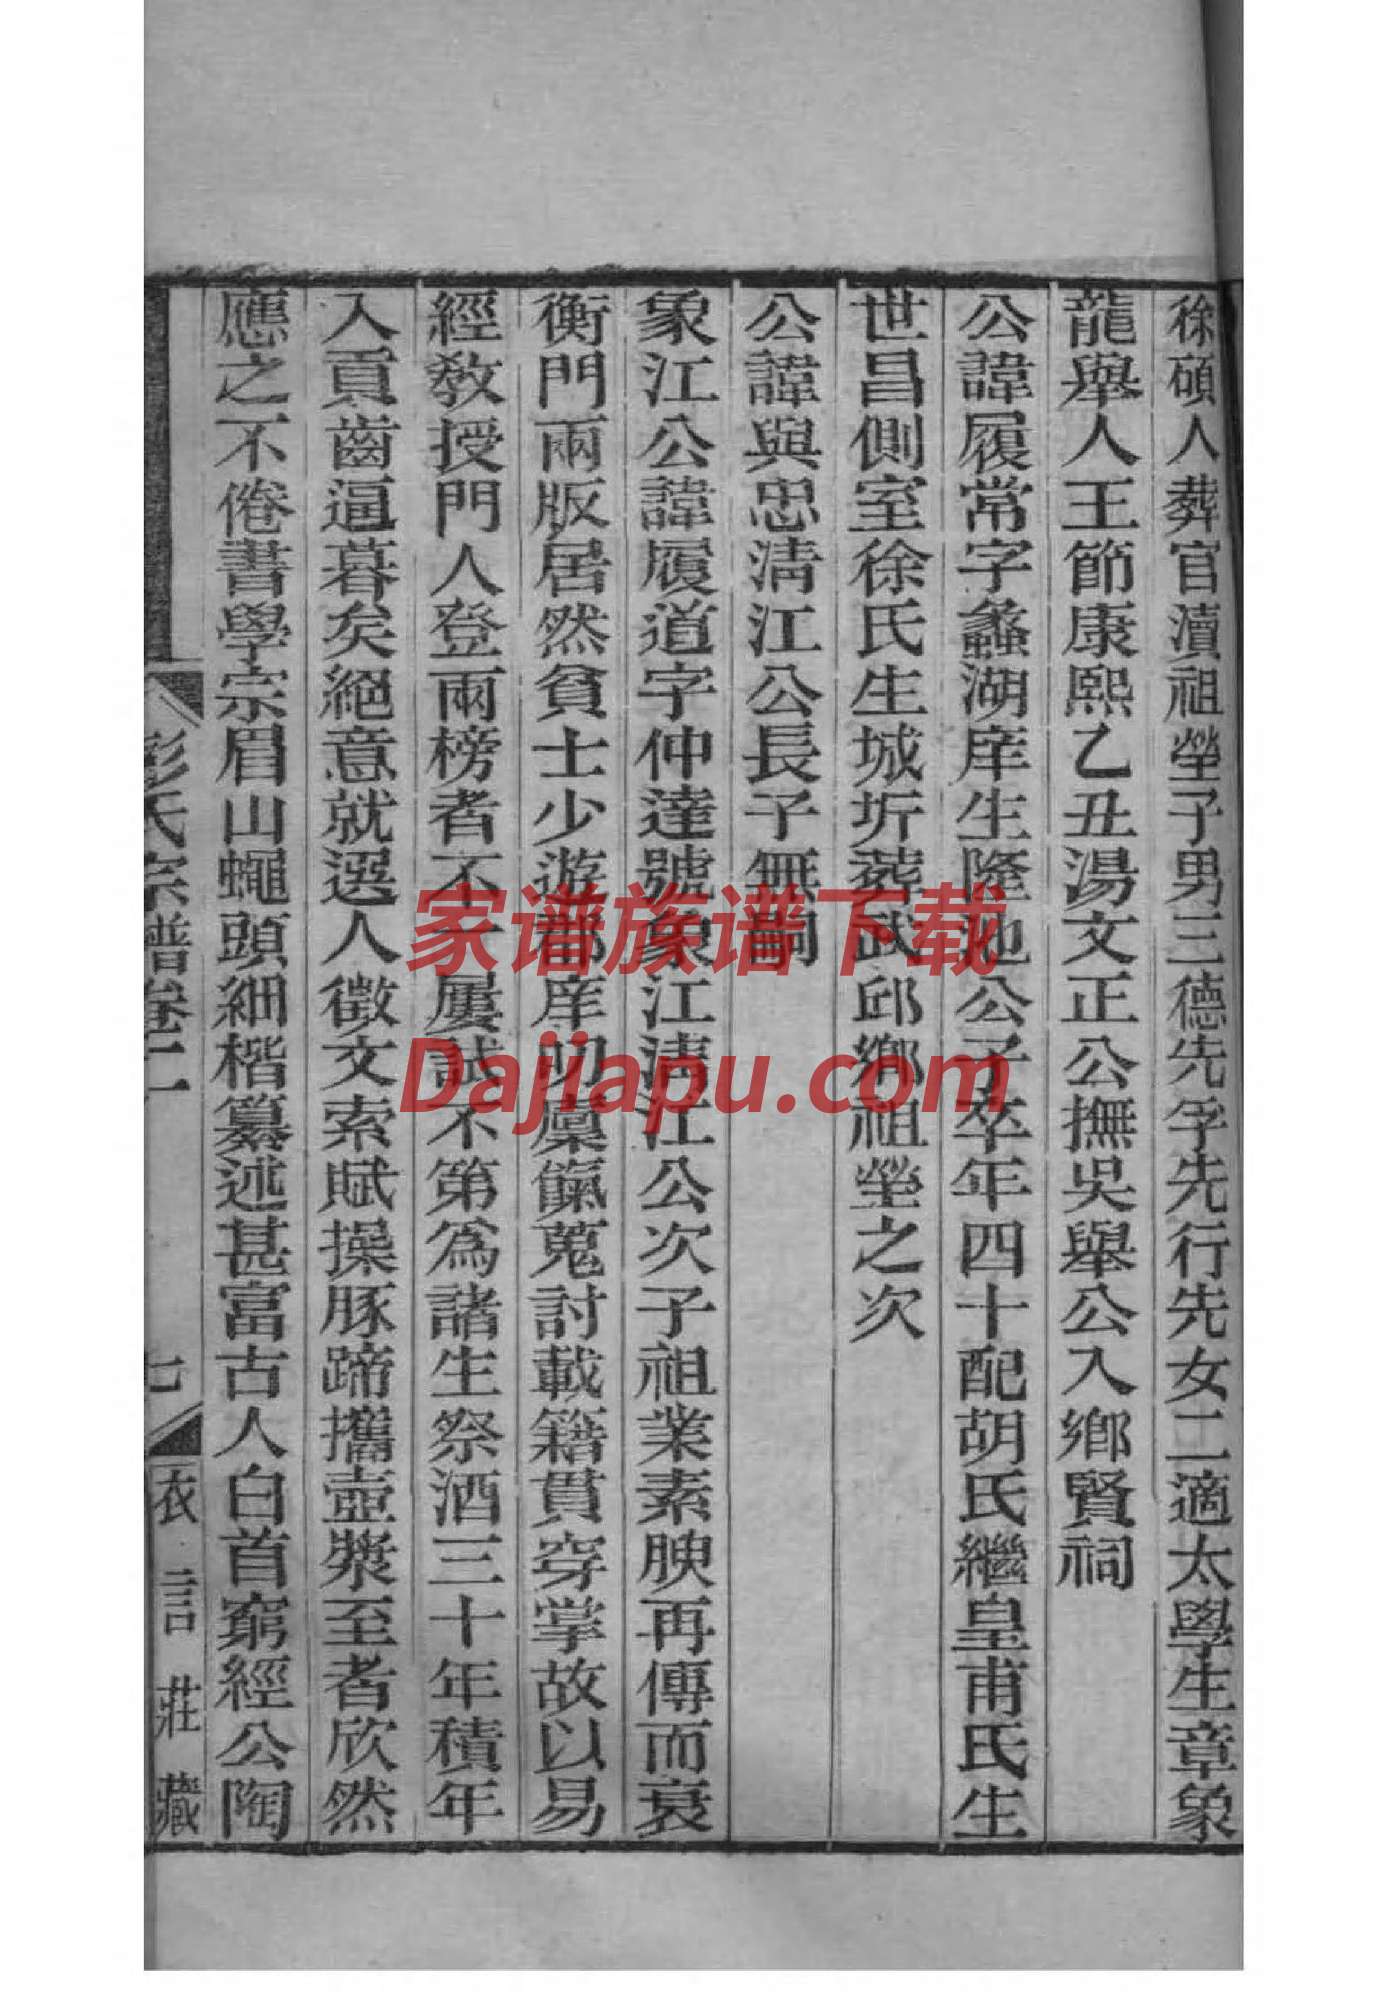 徐碩人葬官瀆祖塋子男三德先孚先行先女二適太學生章象
龍舉人王節康熙乙丑湯文正公撫吳舉公入鄉賢祠
公諱履常字蠡湖庠生隆池公子卒年四十配胡氏繼皇甫氏生
世昌側室徐氏生城圻葬武邱鄉祖塋之次
公諱與忠淸江公長子無嗣
象江公諱履道字仲達號象江淸江公次子祖業素腴再傳而衰
衡門兩版居然貧士少遊郡庠叨廩餼蒐討載籍貫穿掌故以易
經敎授門人登兩榜者不一屢試不第爲諸生祭酒三十年積年
入貢齒逼暮矣絕意就選人徵文索賦操豚蹄攜壺漿至者欣然
應之不倦書學宗眉山蠅頭細楷纂述甚富古人白首窮經公陶
彭氏宗譜卷二
七
衣言莊藏
家谱族谱下载
Dajiapu.com